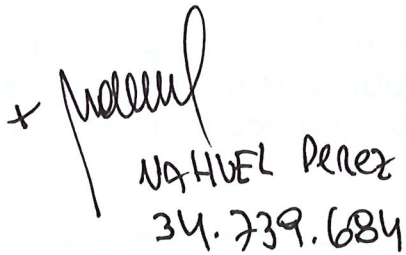 NAHUEL Perez
34.739.684